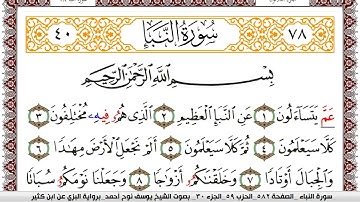 ٤٠ سُورَةُ النَّبَإِ ٧٨
بِسْمِ اللَّهِ الرَّحْمَٰنِ الرَّحِيمِ
عَمَّ يَتَسَاءَلُونَ ١ عَنِ النَّبَإِ الْعَظِيمِ ٢ الَّذِي هُمُ فِيهِ مُخْتَلِفُونَ ٣
كَلَّا سَيَعْلَمُونَ ٤ ثُمَّ كَلَّا سَيَعْلَمُونَ ٥ أَلَمْ نَجْعَلِ الْأَرْضَ مِهَادًا ٦
وَالْجِبَالَ أَوْتَادًا ٧ وَخَلَقْنَاكُمُ أَزْوَاجًا ٨ وَجَعَلْنَا نَوْمَكُمُ سُبَاتًا
سورة النبأ الصفحة ٥٨٢ الحزب ٥٩ الجزء ٣٠ بصوت الشيخ يوسف نوح أحمد برواية البزي عن ابن كثير